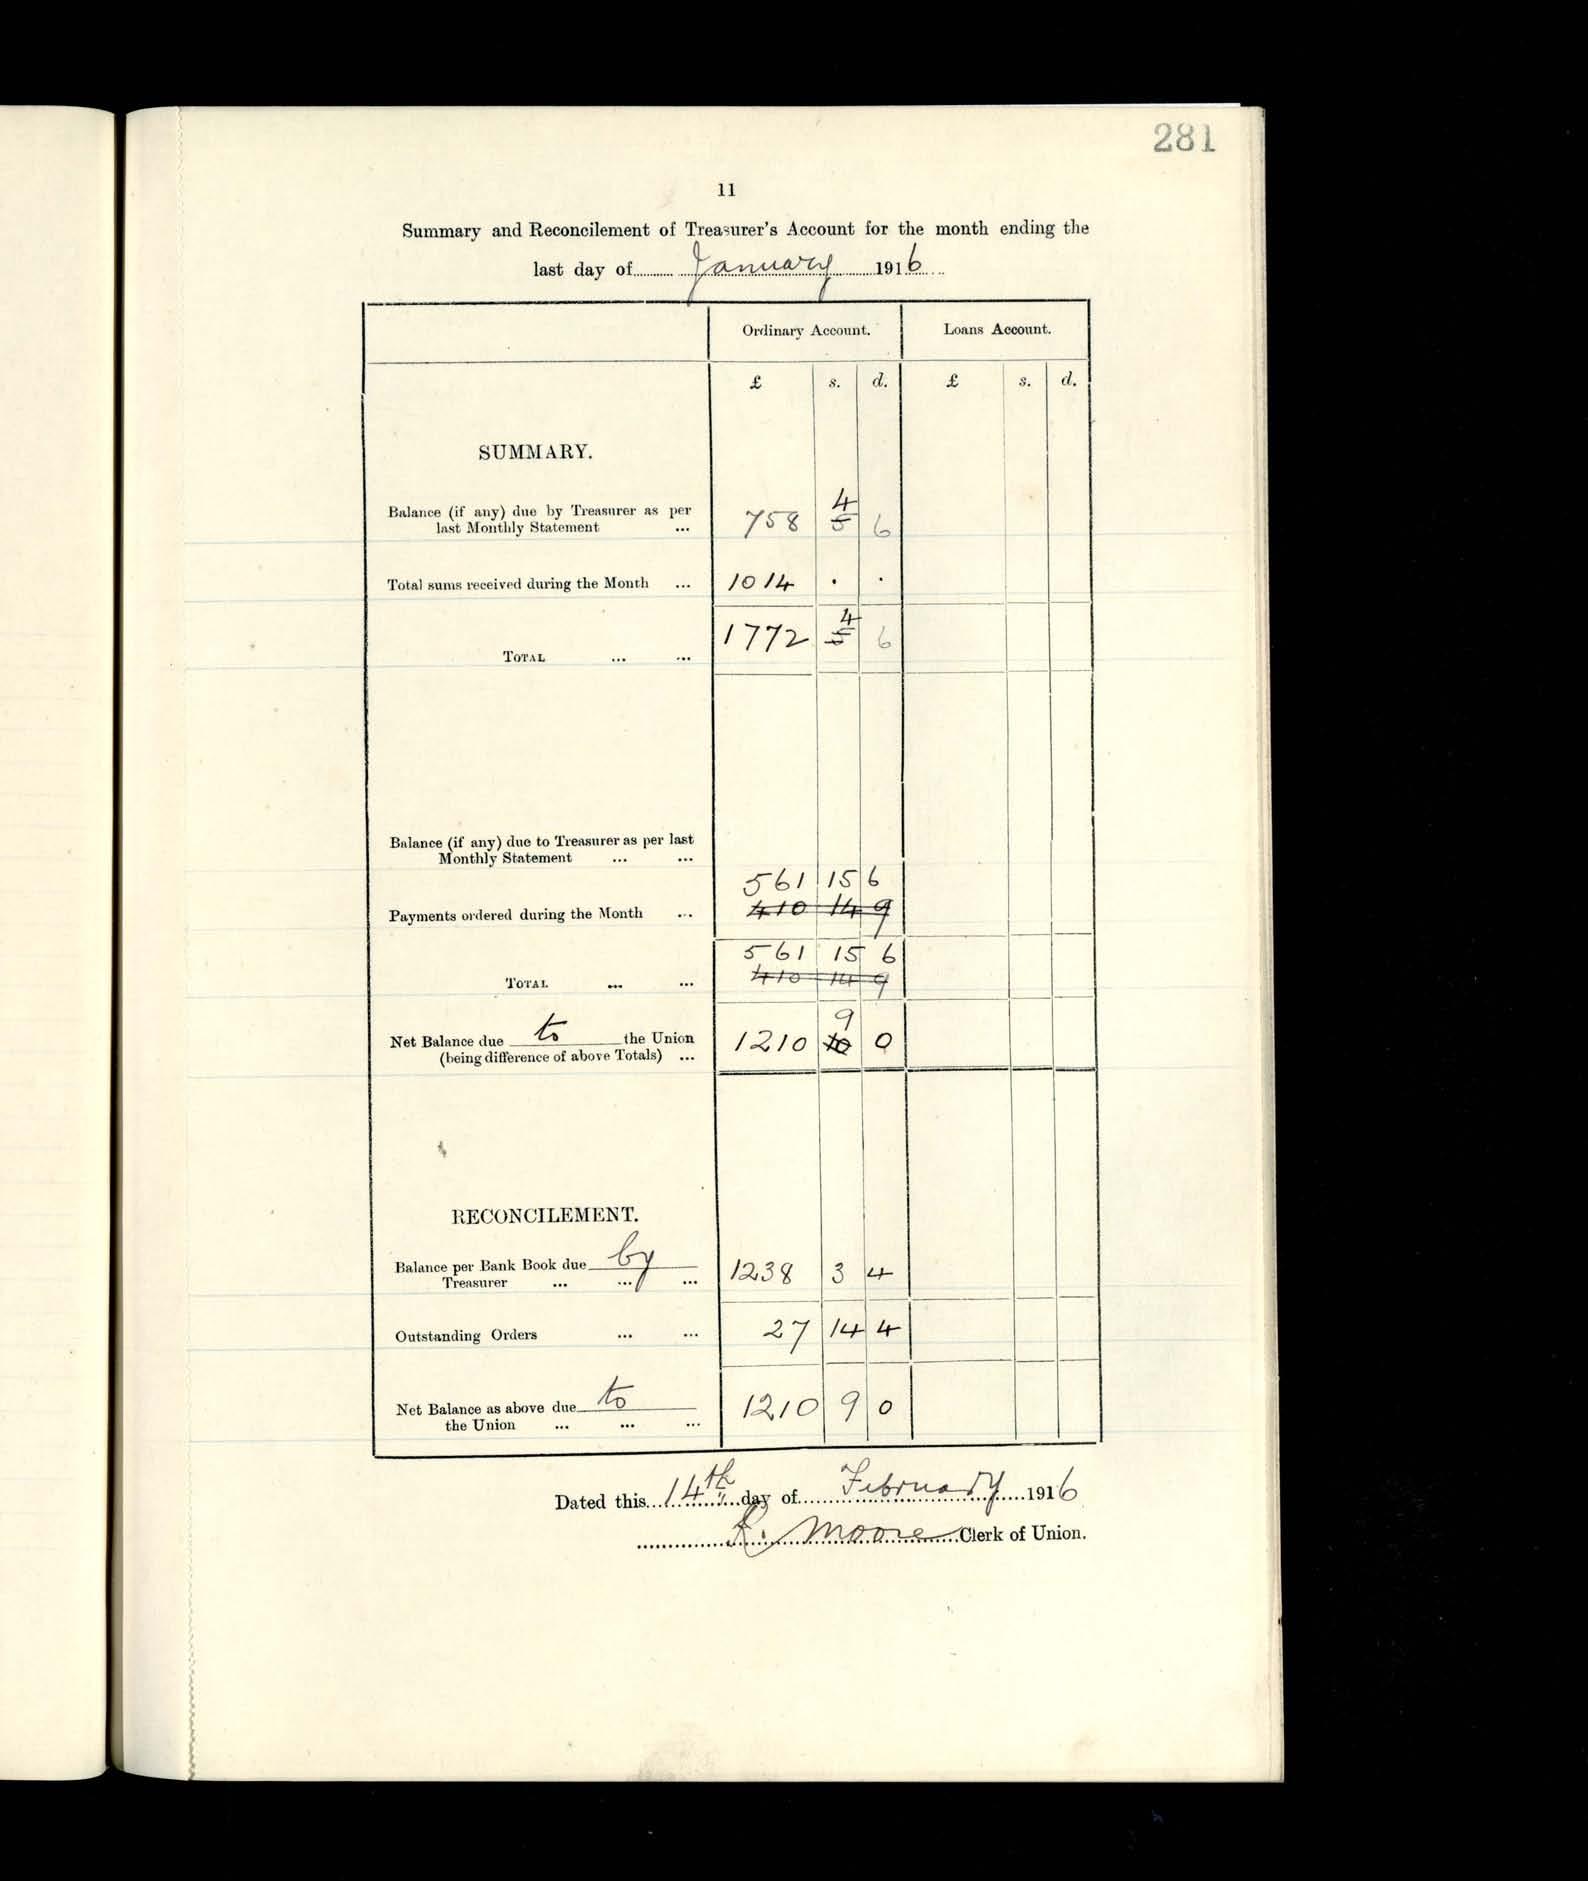 281
11
Summary and Reconcilement of Treasurer's Account for the month ending the
last day of January 1916
Ordinary Account. Loans Account.
£ s. d. £ s. d.
SUMMARY.
4
Balance (if any) due by Treasurer as per
last Monthly Statement ... 758 5 6
Total sums received during the Month ... 1014 . .
4
1772 5 6
TOTAL ... ...
Balance (if any) due to Treasurer as per last
Monthly Statement ... ...
561 15 6
Payments ordered during the Month ... 410 14 9
561 15 6
TOTAL ... ... 410 14 9
9
Net Balance due to the Union 1210 10 0
(being difference of above Totals) ...
RECONCILEMENT.
Balance per Bank Book due by 1238 3 4
Treasurer ... ... ...
Outstanding Orders ... ... 27 14 4
Net Balance as above due to 1210 9 0
the Union ... ... ...
Dated this 14th day of February 1916
R. Moore Clerk of Union.